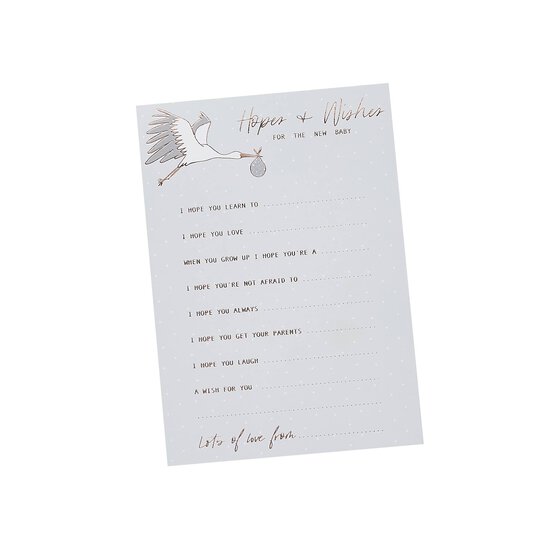 Hopes + Wishes
FOR THE NEW BABY
I HOPE YOU LEARN TO ....................
I HOPE YOU LOVE ....................
WHEN YOU GROW UP I HOPE YOU'RE A ....................
I HOPE YOU'RE NOT AFRAID TO ....................
I HOPE YOU ALWAYS ....................
I HOPE YOU GET YOUR PARENTS ....................
I HOPE YOU LAUGH ....................
A WISH FOR YOU ....................
Lots of love from ....................